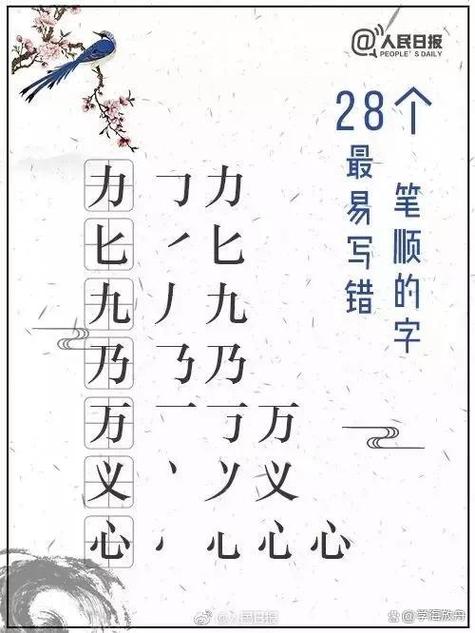 @人民日报
PEOPLE'S DAILY
28个
最易写错
笔顺的字
力 力
匕 丿 匕
九 丿 九
乃 乃
万 一 万
义 丶 义
心 心
@人民日报
@学海放舟